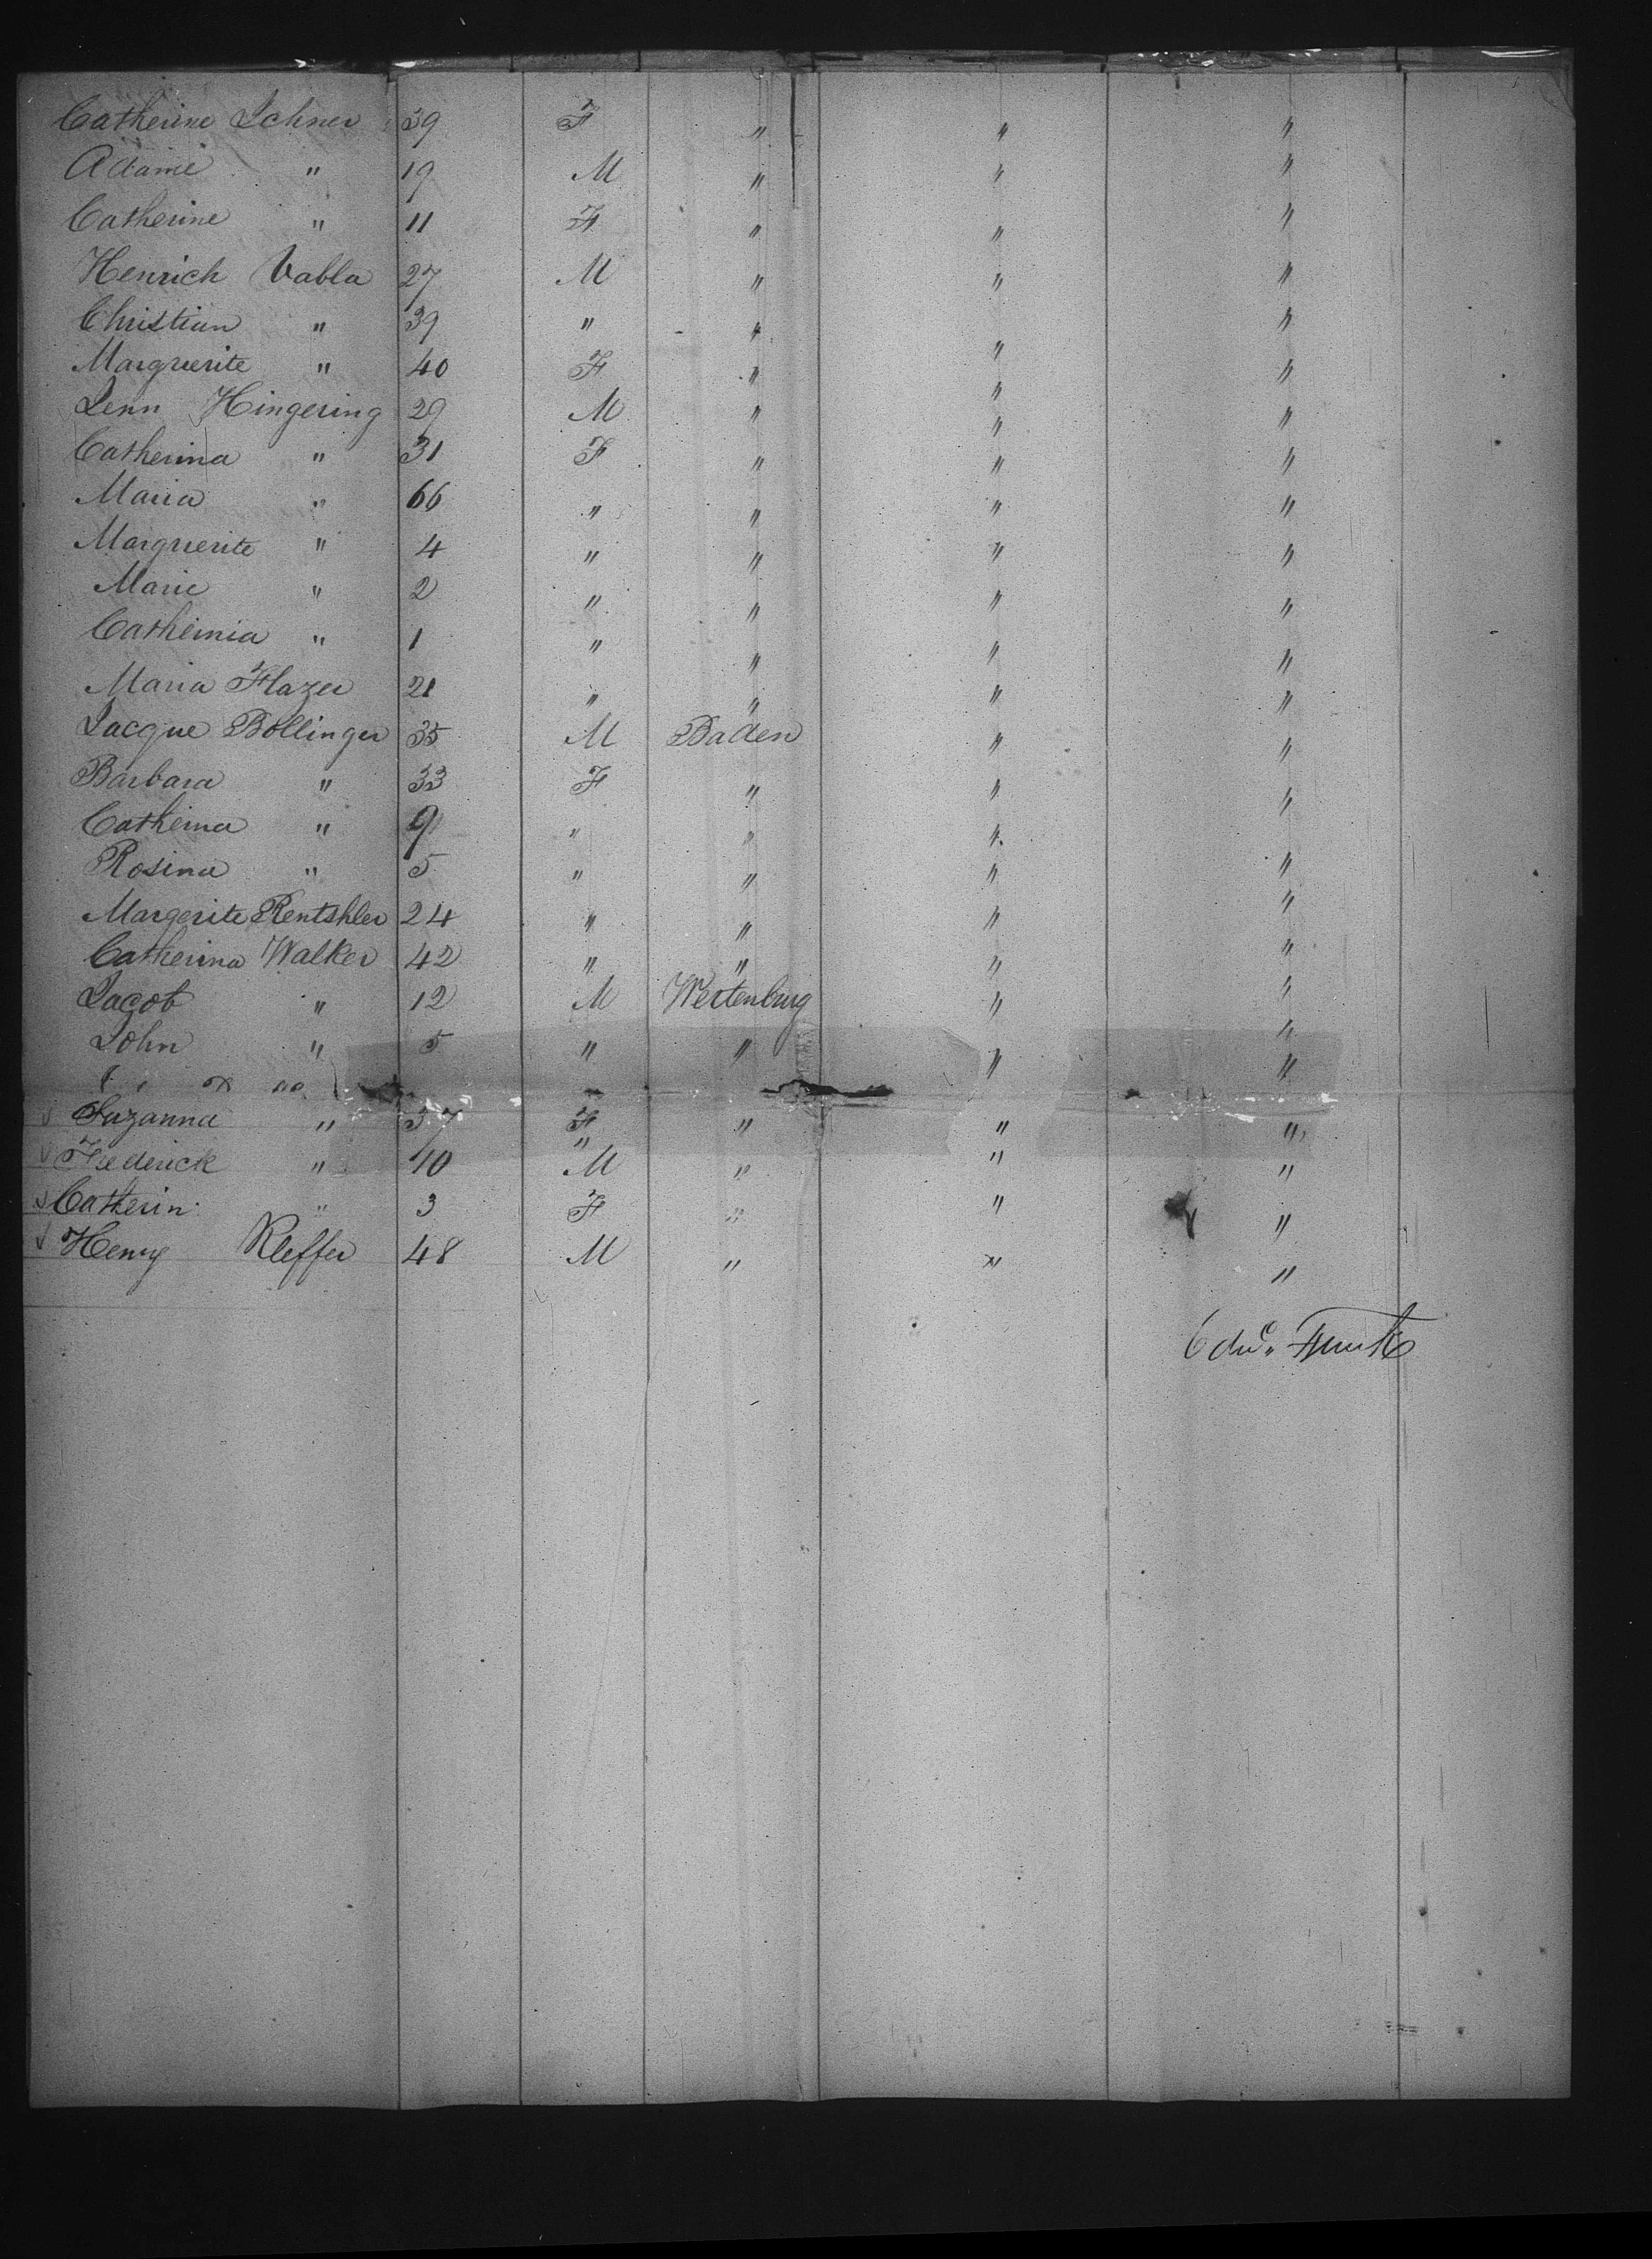 Catherine Schner 39 F " " "
Adame " 19 M " " "
Catherine " 11 F " " "
Henrich Vabla 27 M " " "
Christian " 39 " " " "
Marguerite " 40 F " " "
Jenn Hingering 29 M " " "
Catherina " 31 F " " "
Maria " 66 " " " "
Marguerite " 4 " " " "
Marie " 2 " " " "
Catheinia " 1 " " " "
Maria Flazer 21 " " " "
Jacque Bollinger 35 M Baden " "
Barbara " 33 F " " "
Catheina " 9 " " " "
Rosina " 5 " " " "
Margerite Rentshler 24 " " " "
Catherina Walker 42 " " " "
Jacob " 12 M Wertenburg " "
John " 5 " " " "
Suzanna " 37 F " " "
Frederick " 10 M " " "
Catherin " 3 F " " "
Henry Kleffer 48 M " " "